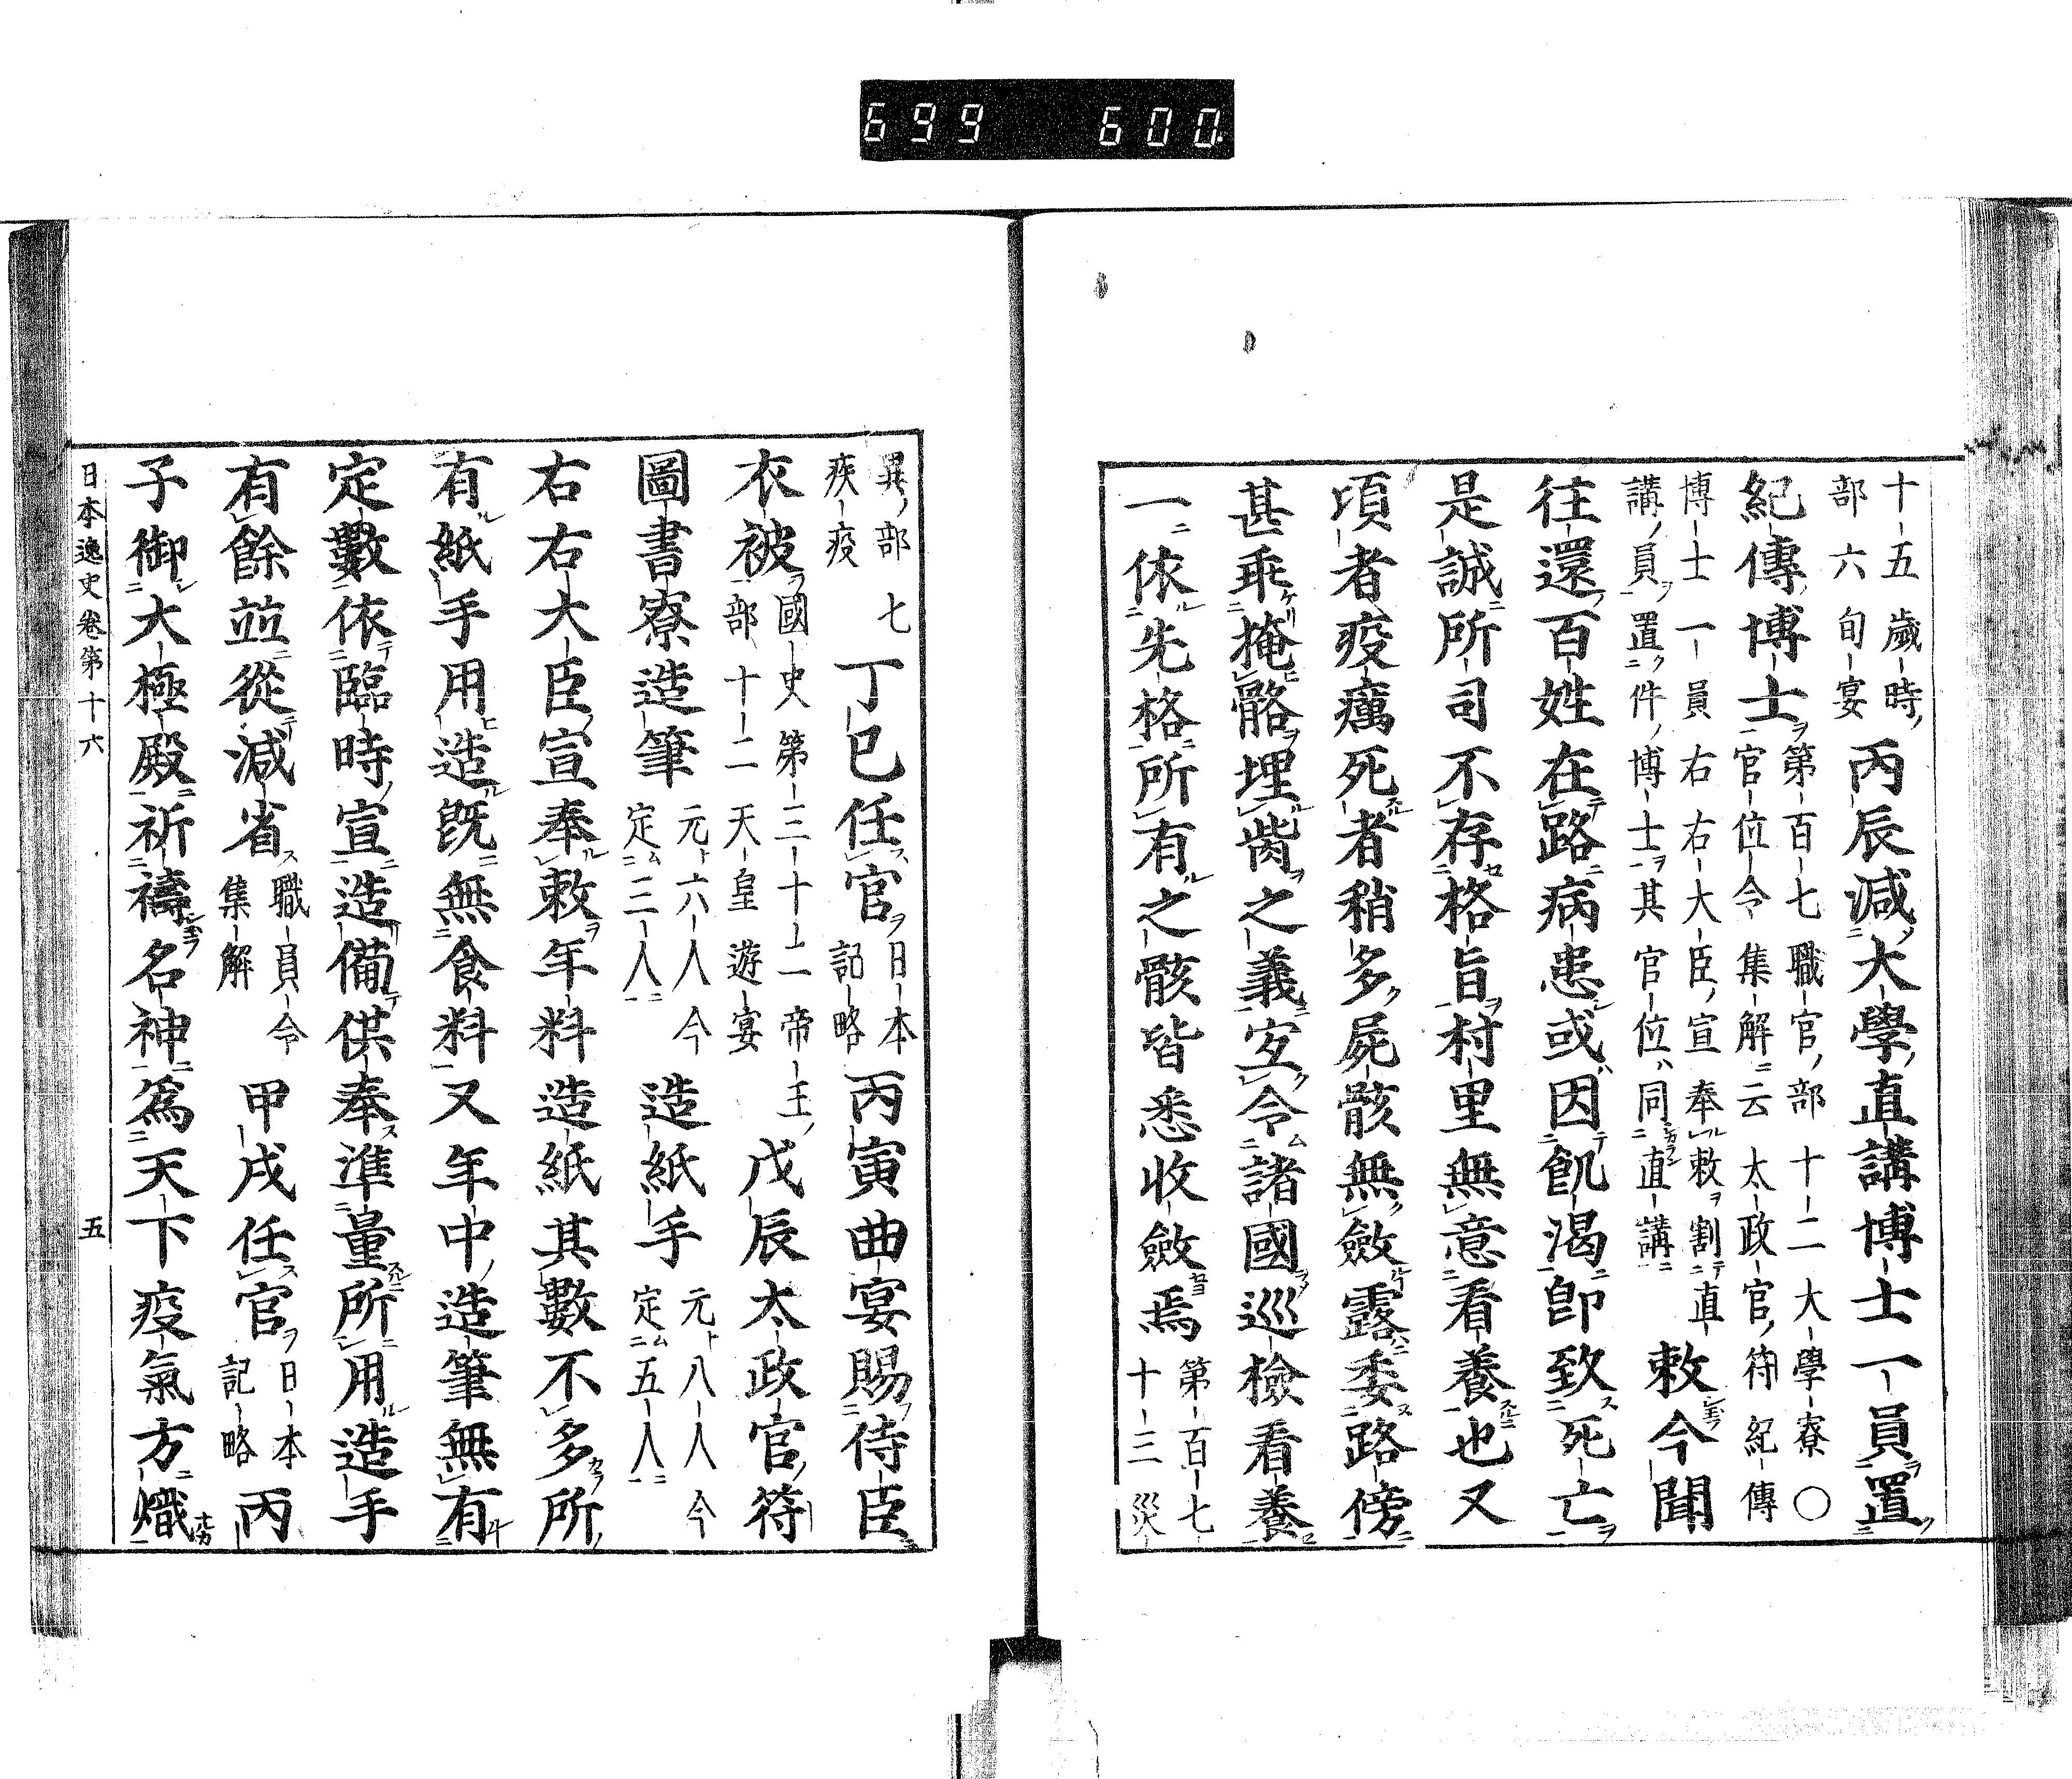 699 600
十五歲時部六旬宴丙辰減大學直講博士一員置
紀傳博士第百七職官部十二大學寮〇官位令集解云太政官符紀傳
博士一員右右大臣宣奉敕割直講員置件博士其官位同直講敕今聞
往還百姓在路病患或因飢渴卽致死亡
是誠所司不存格旨村里無意看養也又
頃者疫癘死者稍多屍骸無斂露委路傍
甚乖掩骼埋胔之義宜令諸國巡檢看養
一依先格所有之骸皆悉收斂焉第百七十三災
異部七疾疫丁巳任官日本記略丙寅曲宴賜侍臣
衣被國史第三十二帝王部十二天皇遊宴戊辰太政官符
圖書寮造筆元六人今定三人造紙手元八人今定五人
右右大臣宣奉敕年料造紙其數不多所
有紙手用造旣無食料又年中造筆無有
定數依臨時宣造備供奉准量所用造手
有餘並從減省職員令集解甲戌任官日本記略丙
子御大極殿祈禱名神爲天下疫氣方熾
日本逸史卷第十六 五